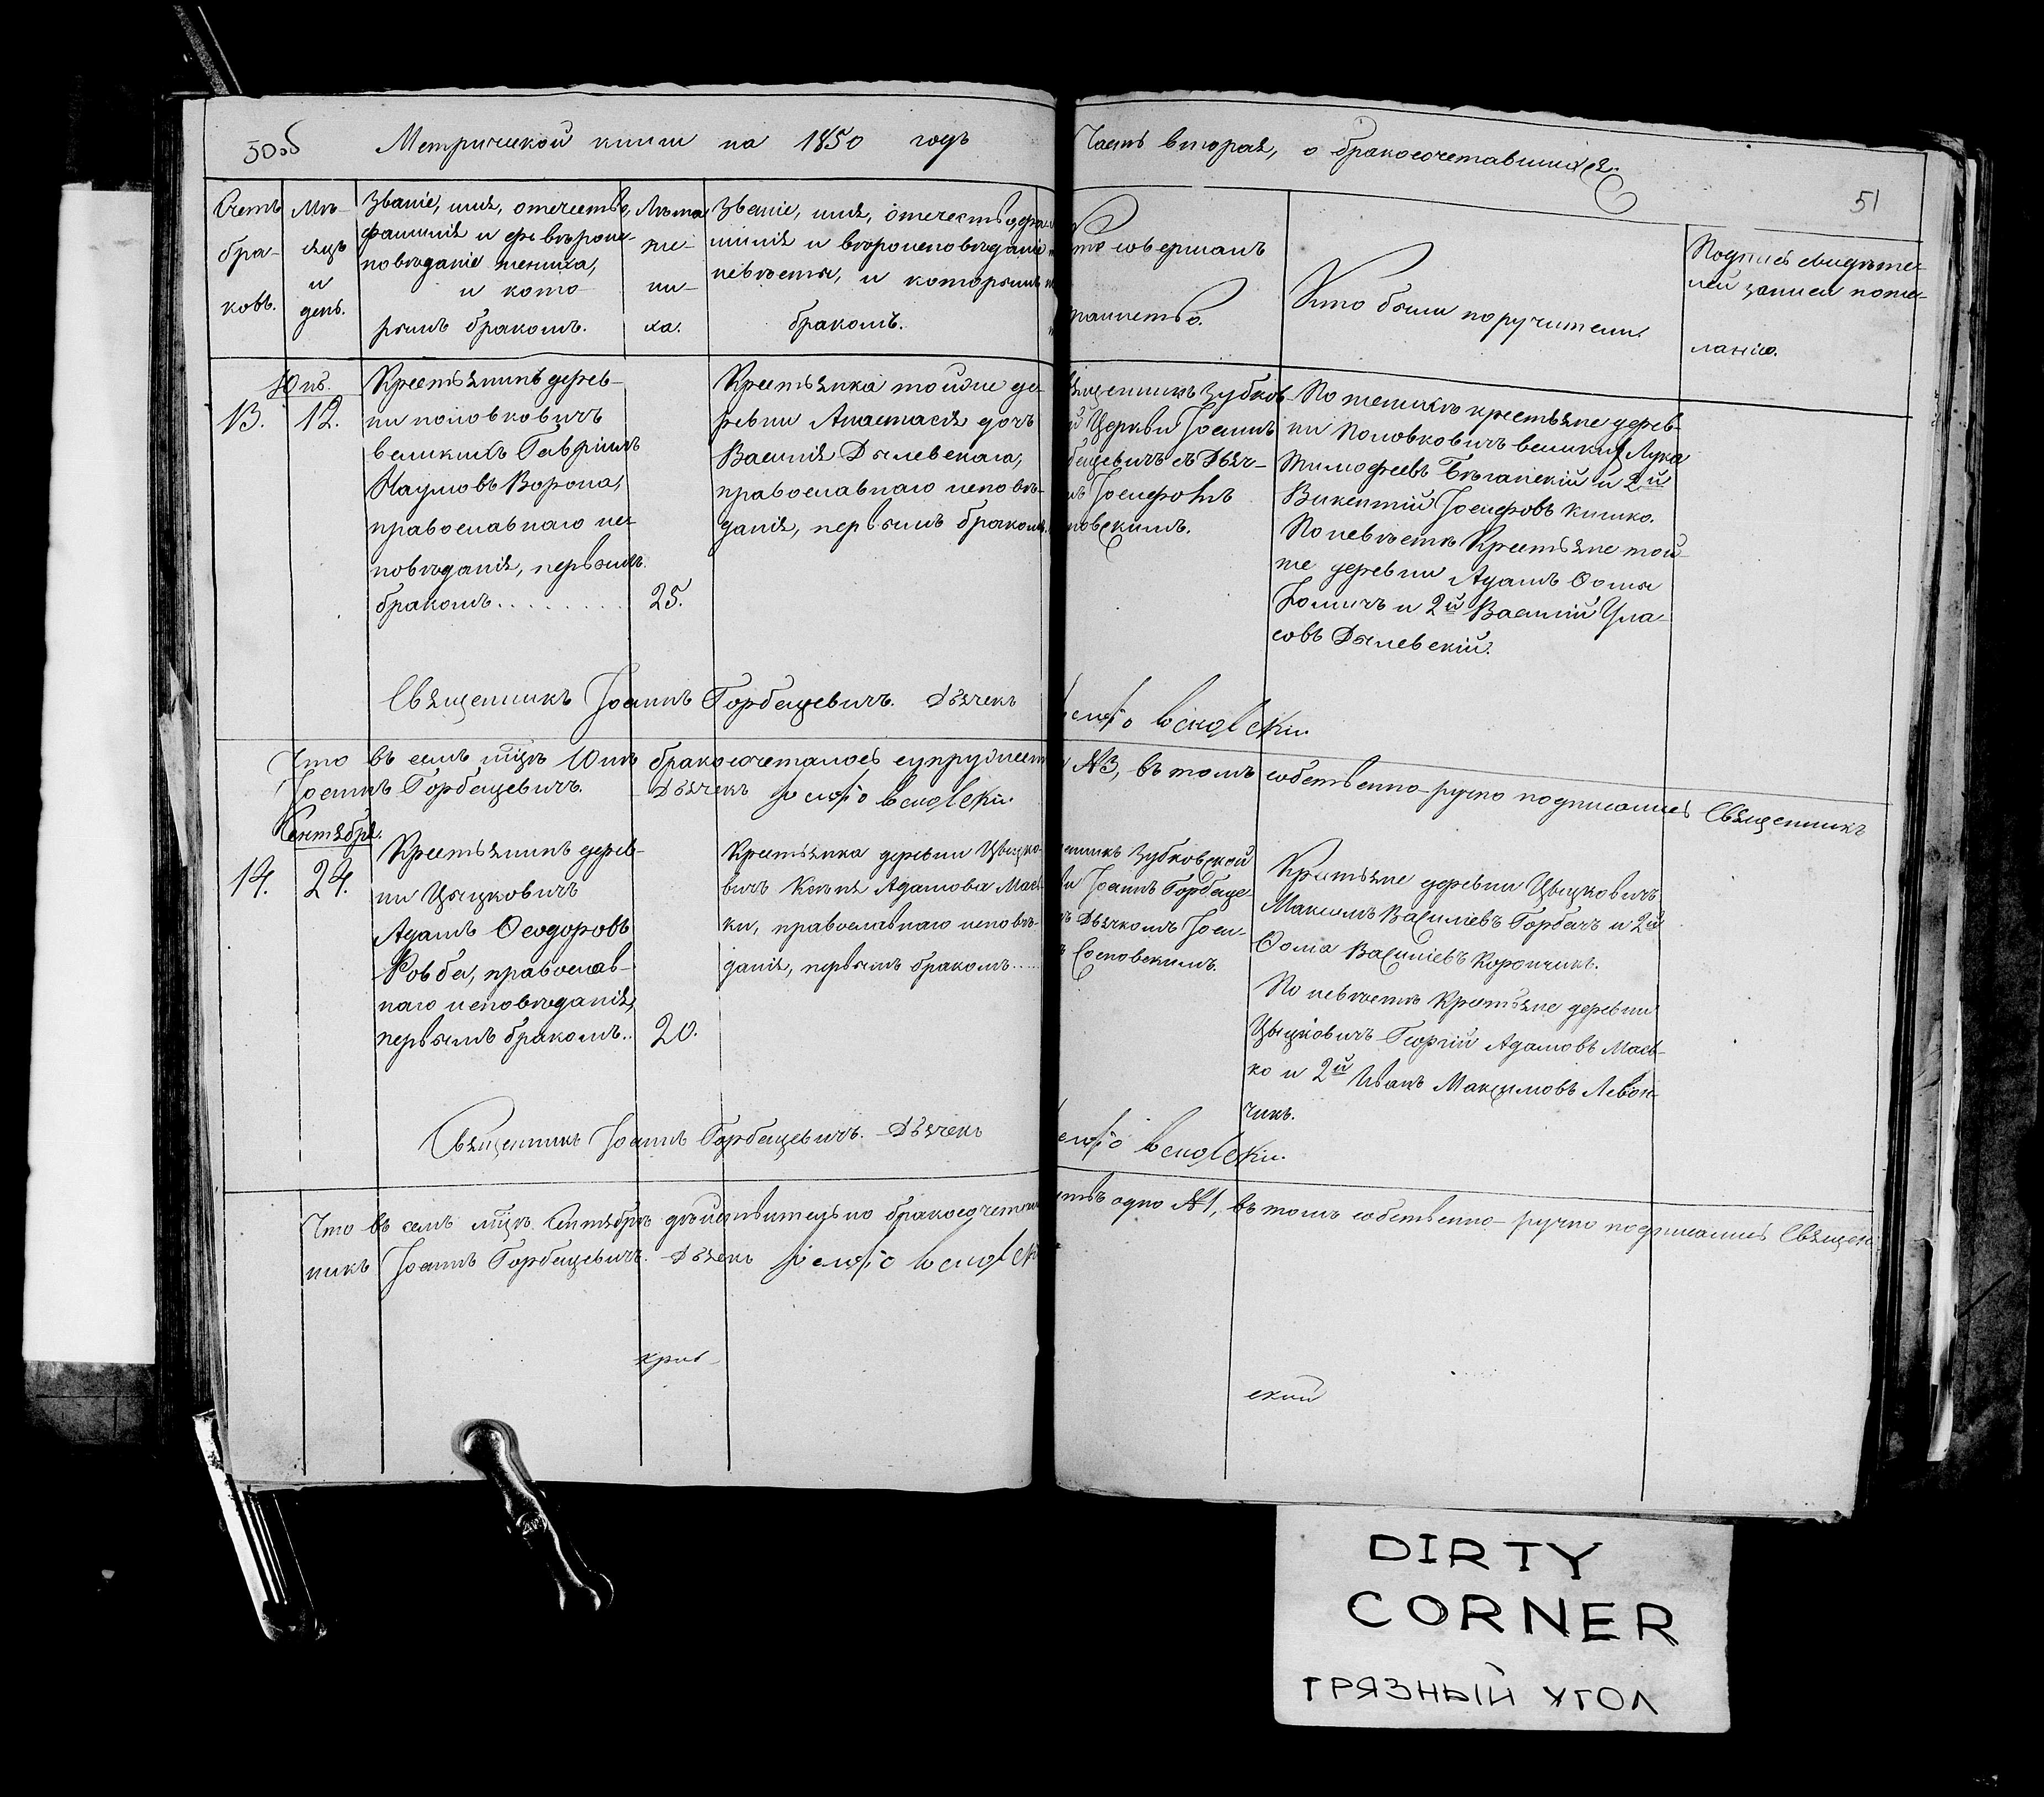 50об Метрической книги на 1850 годъ
Часть вторая, о бракосочетавшихся.
51
Счетъ
бра-
ковъ.
Мѣ-
сяцъ
и
день.
Званіе, имя, отечество,
фамилія и вѣроис-
повѣданіе жениха,
и кото-
рымъ бракомъ.
Лѣта
же-
ни-
ха.
Званіе, имя, отечество, фа-
милія и вѣроисповѣданіе
невѣсты, и которымъ
бракомъ.
то совершалъ
таинство.
Кто были поручители.
Подпись свидѣте-
лей записи по же-
ланію.
Юль.
13. 12.
Крестьянинъ дерев-
ни Половковичъ
великихъ Гавріилъ
Наумовъ Ворона,
православнаго ис-
повѣданія, первымъ
бракомъ.........
25.
Крестьянка той же де-
ревни Анастасія дочь
Василія Дылевскаго,
православнаго исповѣ-
данія, первымъ бракомъ.
щенникъ Зубков-
й Церкви Іоаннъ
бацевичъ съ Дьяч-
мъ Іосифомъ
новскимъ.
По женихѣ крестьяне дерев-
ни Половковичъ великихъ Лука
Тимофеевъ Бѣганскій и 2й
Викентій Іосифовъ Кишко.
По невѣстѣ Крестьяне той
же деревни Адамъ Ѳомы
Іомичъ и 2й Василій Ула-
совъ Дылевскій.
Священникъ Іоаннъ Горбацевичъ. Дьячекъ
Что въ семъ мцѣ Юлѣ бракосочеталось супружест
№3, въ томъ собственно-ручно подписались Священникъ
Іоаннъ Горбацевичъ. Дьячекъ
Сентября.
14. 24.
Крестьянинъ дерев-
ни Цыцковичъ
Адамъ Ѳеодоровъ
Ровба, православ-
наго исповѣданія,
первымъ бракомъ..
20.
Крестьянка деревни Цыцко-
вичъ Ксенія Адамова Мась-
ки, православнаго исповѣ-
данія, первымъ бракомъ.....
енникъ Зубковской
ви Іоаннъ Горбаце-
ъ Дьячкомъ Іоси-
ъ Сосновскимъ.
Крестьяне деревни Цыцковичъ
Максимъ Василіевъ Горбачъ и 2й
Ѳома Василіевъ Корончикъ.
По невѣстѣ Крестьяне деревни
Цыцковичъ Георгій Адамовъ Мась-
ко и 2й Иванъ Максимовъ Левон-
чикъ.
Священникъ Іоаннъ Горбацевичъ. Дьячекъ
Что въ семъ мцѣ Сентябрѣ дѣйствительно бракосочетаній
одно №1, въ томъ собственно-ручно подписались Священ-
никъ Іоаннъ Горбацевичъ. Дьячекъ
скій
DIRTY
CORNER
ГРЯЗНЫЙ УГОЛ